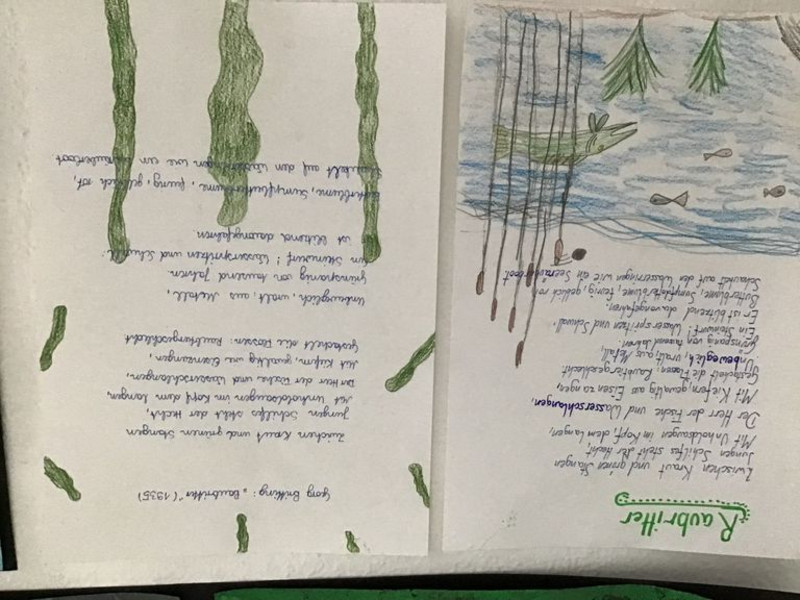 Raubritter
Zwischen Kraut und grünen Stangen
Jungen Schilfes steht der Hecht,
Mit Unholdsaugen im Kopf, dem langen,
Der Herr der Fische und Wasserschlangen,
Mit Kiefern, gewaltig aus Eisen zangen,
Gestachelt die Flossen: Raubtiergeschlecht
Unbeweglich, uralt aus Metall,
Grünspanig von tausend Jahren.
Ein Steinwurf! Wasserspritzen und Schwall:
Er ist blitzend davongefahren.
Butterblume, Sumpfdotterblume, feurig, gelblich rot
Schaukelt auf den Wasserringen wie ein Seeräuberboot.
Georg Britting: „Raubritter" (1935)
Zwischen Kraut und grünen Stangen
jungen Schilfes steht der Hecht,
Mit Unholdsaugen im Kopf dem langen,
Der Herr der Fische und Wasserschlangen,
Mit Kiefern, gewaltig wie Eisenzangen,
Gestachelt die Flossen: Raubtiergeschlecht
Unbeweglich, uralt, aus Metall,
Grünspanig von tausend Jahren.
Ein Steinwurf! Wasserspritzen und Schwall:
ist blitzend davongefahren
Butterblume, Sumpfdotterblume, feurig, gelblich rot,
Schaukelt auf den Wasserringen wie ein Seeräuberboot